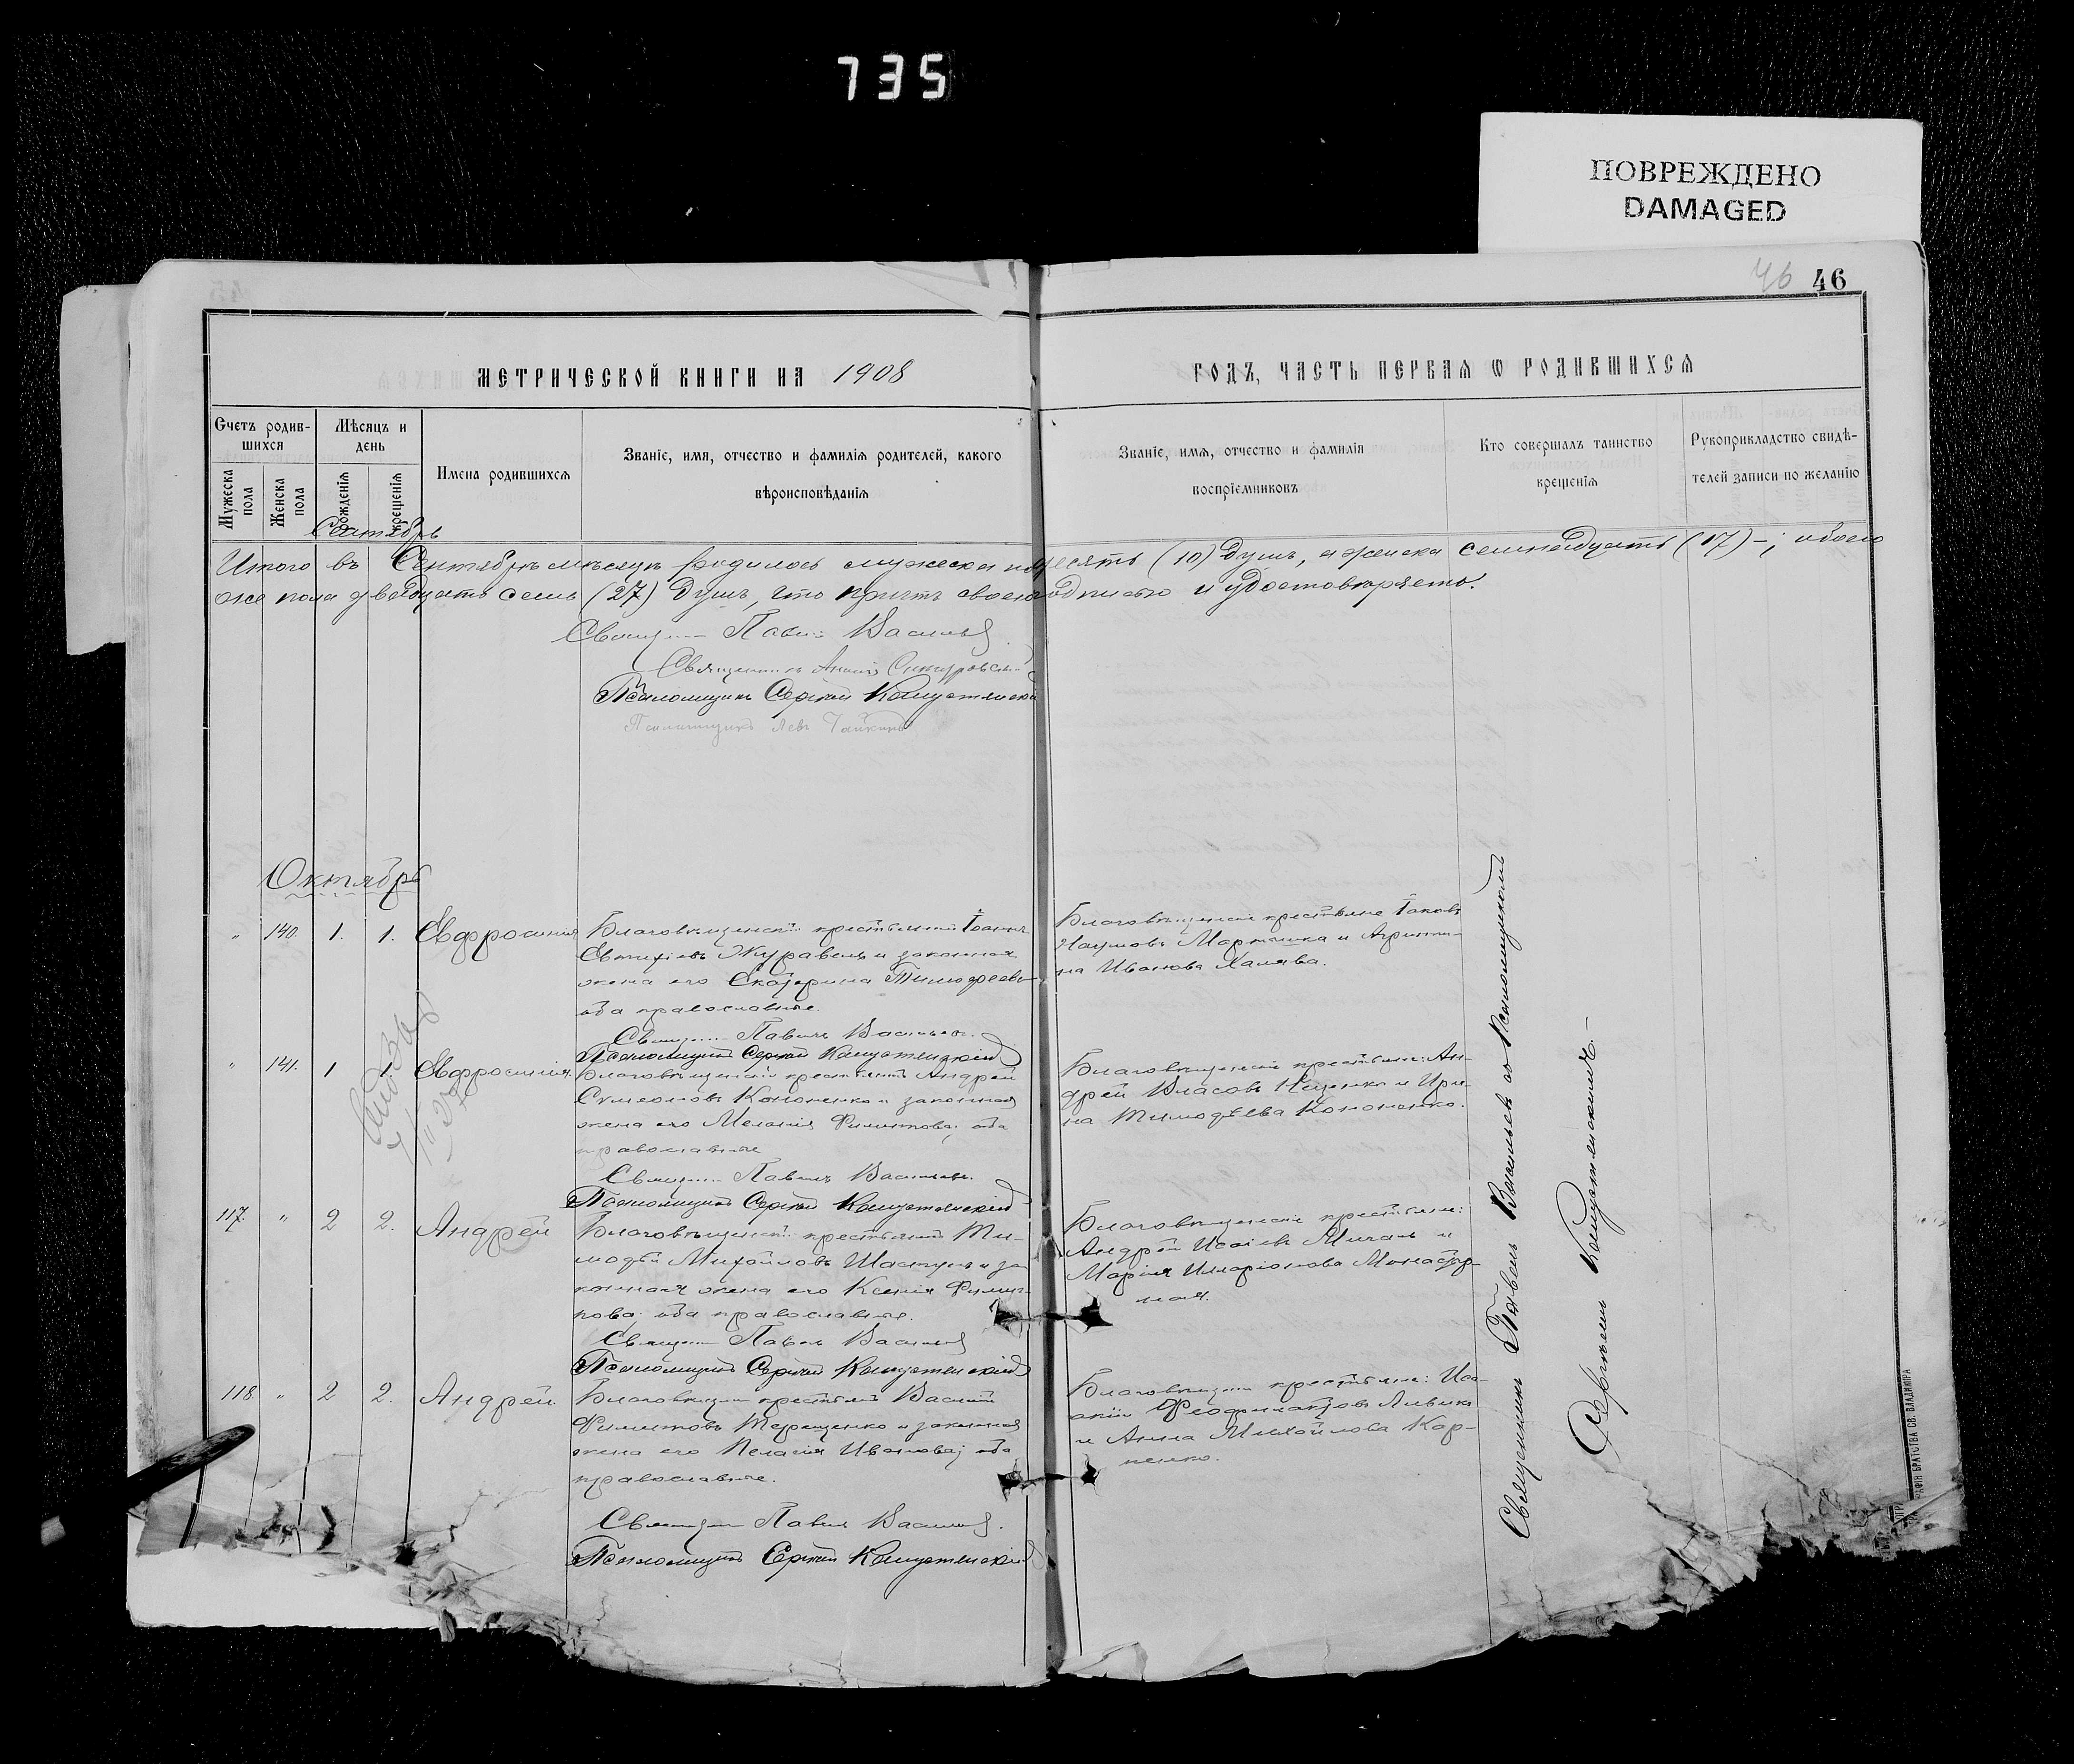 735
ПОВРЕЖДЕНО
DAMAGED
46 46
МЕТРИЧЕСКОЙ КНИГИ НА 1908
ГОДЪ, ЧАСТЬ ПЕРВАЯ Ѡ РОДИВШИХСЯ
Счетъ родив-
шихся
Мужеска пола
Женска пола
Мѣсяцъ и
день
рожденія
крещенія
Имена родившихся
Званіе, имя, отчество и фамилія родителей, какого
вѣроисповѣданія
Званіе, имя, отчество и фамилія
воспріемниковъ
Кто совершалъ таинство
крещенія
Рукоприкладство свидѣ-
телей записи по желанію
Сентябрь
Итого въ Сентябрѣ мѣсяцѣ родилось мужеска пола десять (10) душъ, а женска семнадцать (17) –; обоего
же пола двадцать семь (27) душъ, что причтъ своею подписью и удостовѣряетъ.
Священ. Павелъ Васильев
Священникъ
Псаломщикъ Сергѣй
Псаломщикъ Левъ
Октябрь
" 140. 1. 1. Евфросинія
Благовѣщенскій крестьянинъ Іоаннъ
Евтихіевъ Журавель и законная
жена его Екатерина Тимофеева
оба православные.
Священ. Павелъ Васильев.
Псаломщикъ Сергѣй
Благовѣщенскіе крестьяне Іаковъ
Наумовъ Мартыика и Агрипи-
на Иванова Халява.
" 141. 1 1. Евфросинія.
Благовѣщенскій крестьянинъ Андрей
Симеоновъ Кононенко и законная
жена его Меланія Филиппова; оба
православные
Священ. Павелъ Васильев.
Псаломщикъ Сергѣй
Благовѣщенскіе крестьяне: Ан-
дрей Власовъ Ищенко и Ири-
на Тимофѣева Кононенко.
117. " 2 2. Андрей
Благовѣщенскій крестьянинъ Ти-
мофей Михайловъ и за
конная жена его Ксенія
оба православные.
Священ. Павелъ Васильев
Псаломщикъ Сергѣй
Благовѣщенскіе крестьяне:
Андрей Исаіевъ и
Марія Иларіонова Монастыр-
ная.
118. " 2 2. Андрей.
Благовѣщен. крестьян. Василій
Филиповъ Терещенко и законная
жена его Пелагія Иванова; оба
православные.
Священ. Павелъ Васильев.
Псаломщикъ Сергѣй
Благовѣщен. крестьяне: Иса-
акій Феофилактовъ
и Анна Михайлова Кар-
пенко.
Священникъ Павелъ Васильев съ Псаломщикомъ
Сергѣемъ